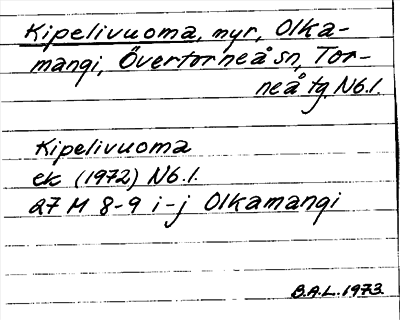 Kipelivuoma, myr, Olka-
mangi, Övertorneå sn, Tor-
neå tg. Nб.l.
Kipelivuoma
ek (1972) Nб.l.
27 M 8-9 i-j Olkamangi
B.A.L. 1973